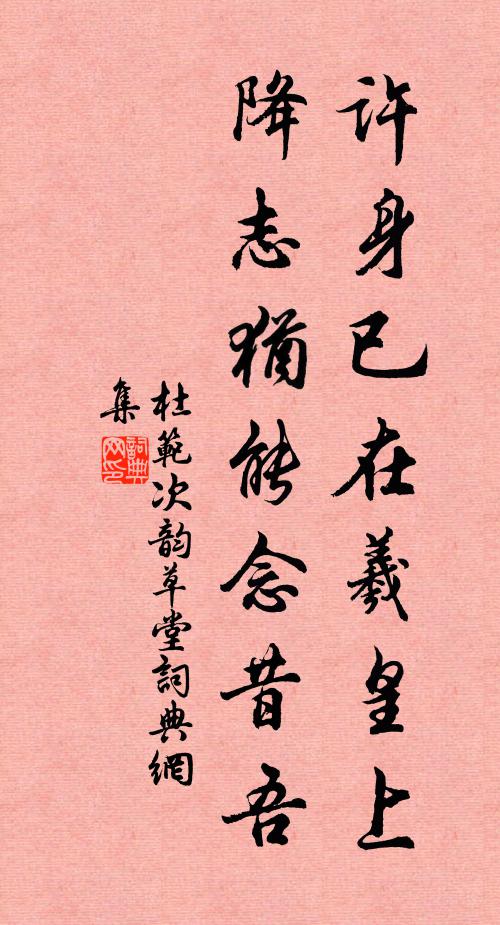 許身已在羲皇上
降志猶能念昔吾
杜範次韵草堂詞典網
集
詞典网印